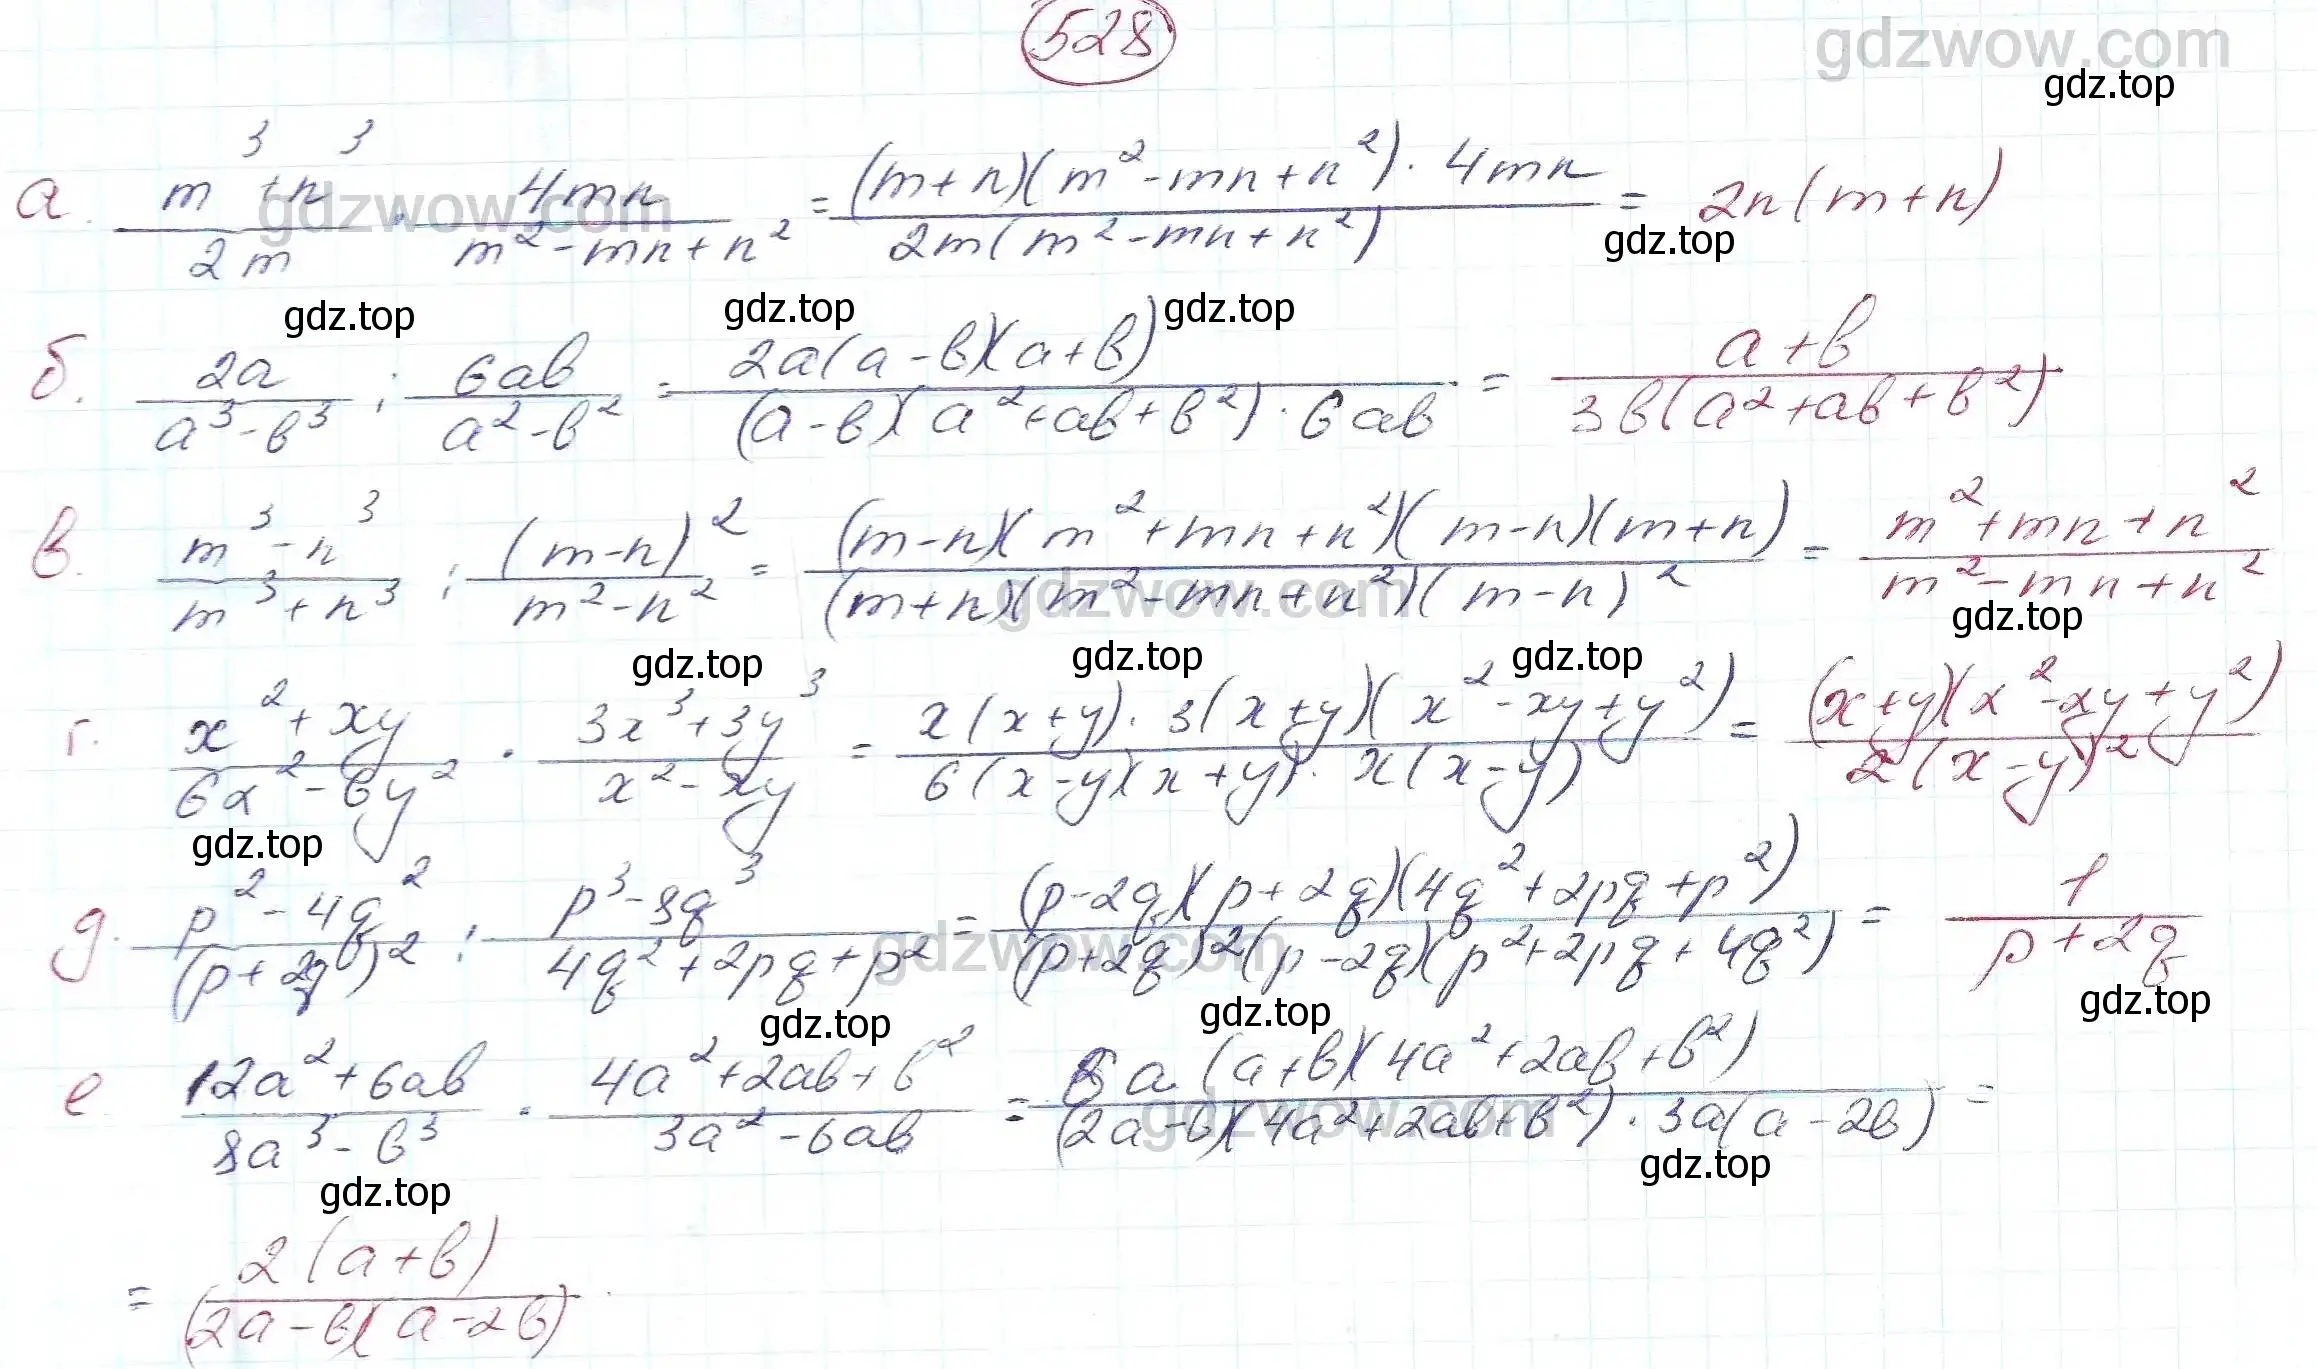 528
gdzwow.com
gdz.top
а. (m³+n³)/(2m) · (4mn)/(m²-mn+n²) = ((m+n)(m²-mn+n²)·4mn)/(2m(m²-mn+n²)) = 2n(m+n)
gdzwow.com
gdz.top
gdz.top gdz.top gdz.top
б. (2a)/(a³-b³) : (6ab)/(a²-b²) = (2a(a-b)(a+b))/((a-b)(a²+ab+b²)·6ab) = (a+b)/(3b(a²+ab+b²))
в. (m³-n³)/(m³+n³) : ((m-n)²)/(m²-n²) = ((m-n)(m²+mn+n²)(m-n)(m+n))/((m+n)(m²-mn+n²)(m-n)²) = (m²+mn+n²)/(m²-mn+n²)
gdzwow.com
gdz.top
gdz.top gdz.top gdz.top
г. (x²+xy)/(6x²-6y²) · (3x³+3y³)/(x²-xy) = (x(x+y)·3(x+y)(x²-xy+y²))/(6(x-y)(x+y)·x(x-y)) = ((x+y)(x²-xy+y²))/(2(x-y)²)
gdz.top
д. (p²-4q²)/((p+2q)²) : (p³-8q³)/(4q²+2pq+p²) = ((p-2q)(p+2q)(4q²+2pq+p²))/((p+2q)²(p-2q)(p²+2pq+4q²)) = 1/(p+2q)
gdzwow.com
gdz.top gdz.top gdz.top
е (12a²+6ab)/(8a³-b³) · (4a²+2ab+b²)/(3a²-6ab) = (6a(a+b)(4a²+2ab+b²))/((2a-b)(4a²+2ab+b²)·3a(a-2b)) =
gdzwow.com
gdz.top gdz.top
= (2(a+b))/((2a-b)(a-2b)).